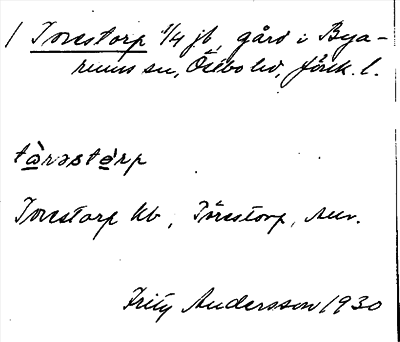 / Torestorp 1/4 jb, gård i Bya-
rums sn, Östbo hd, Jönk. l.
tòrəstórp
Torestorp kb, Törestorp, mtr.
Fritz Andersson 1930